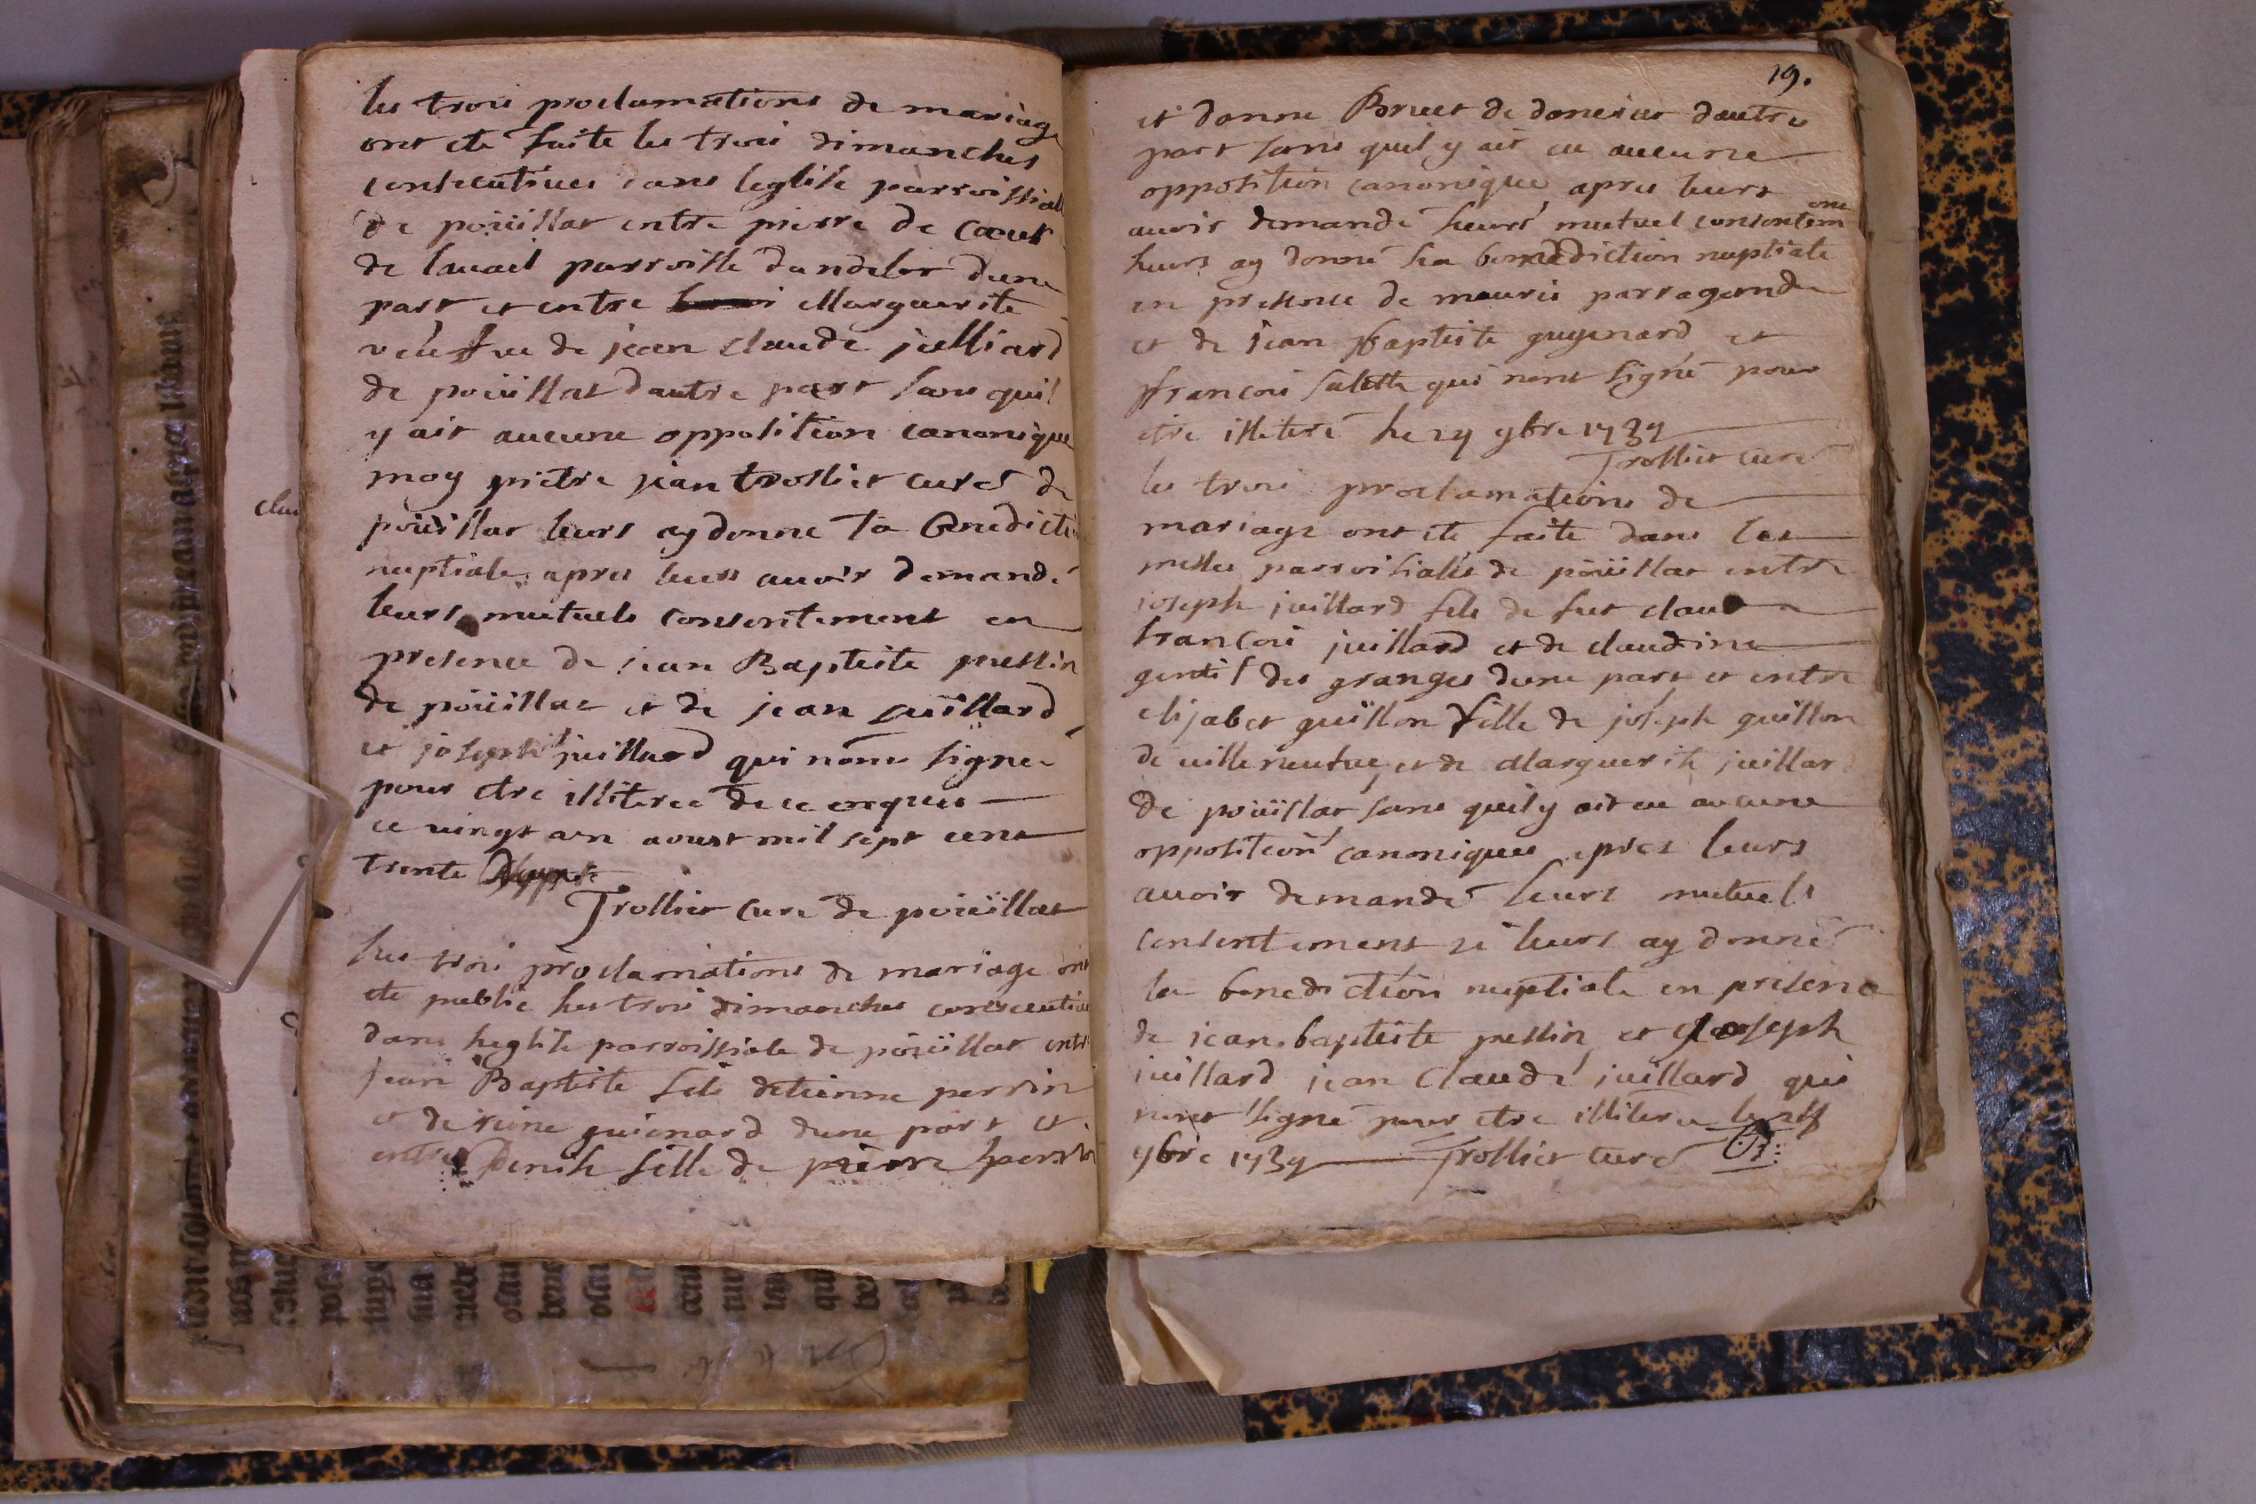 les trois proclamations de mariage
ont ete faite les trois dimanches
consecutives dans leglise parroissiall
de poüillat entre pierre de Coeur
de lavail parroisse dandelot dune
part et entre Marguerite
veusve de jean claude julliard
de poüillat dautre part sans quil
y ait aucune opposition canonique
moy prètre jean trollier curé de
poüillat leurs ay donne la Benedicti
nuptiale apres leurs auoir demandé
leurs mutuels consentement en
presence de jean Baptiste pellin
de poüillat et de jean juillard
et joseph juillard qui nont signé
pour etre illiteree de ce enquis
ce vingt aoust mil sept cent
trente
Trollier Cure de poüillat
les trois proclamations de mariage ont
ete publié les trois dimanches consecutiue
dans leglise parroissiale de poüillat entr
jean Baptiste fils detienne perrin
et de reine guienard dune part et
entre Denise fille de pierre perrin
19.
et donne Bruet de donsieur dautre
part sans quil y ait eu aucune
opposition canonique apres leurs
auoir demandé leurs mutuel consentem
leurs ay donné la benediction nuptiale
en presence de mauris parragande
et de jean Baptiste guyenard et
françois qui nont signé pour
etre illiteré le 9bre 1739
Trollier curé
les trois proclamations de
mariage ont ete faite dans les
messes parroisiales de poüillat entre
joseph juillard fils de fut claude
francois juillard et de claudine
gentil des granges dune part et entre
elisabet guillon fille de joseph guillon
de villeneufue et de Marguerite juillard
de poüillat sans quil y ait eu aucune
opposition canoniques apres leurs
auoir demandé leurs mutuels
consentement je leurs ay donné
la benediction nuptiale en presence
de jean baptiste pellin et joseph
juillard jean Claude juillard qui
nont signé pour etre illiteree le
9bre 1739 Trollier Curé